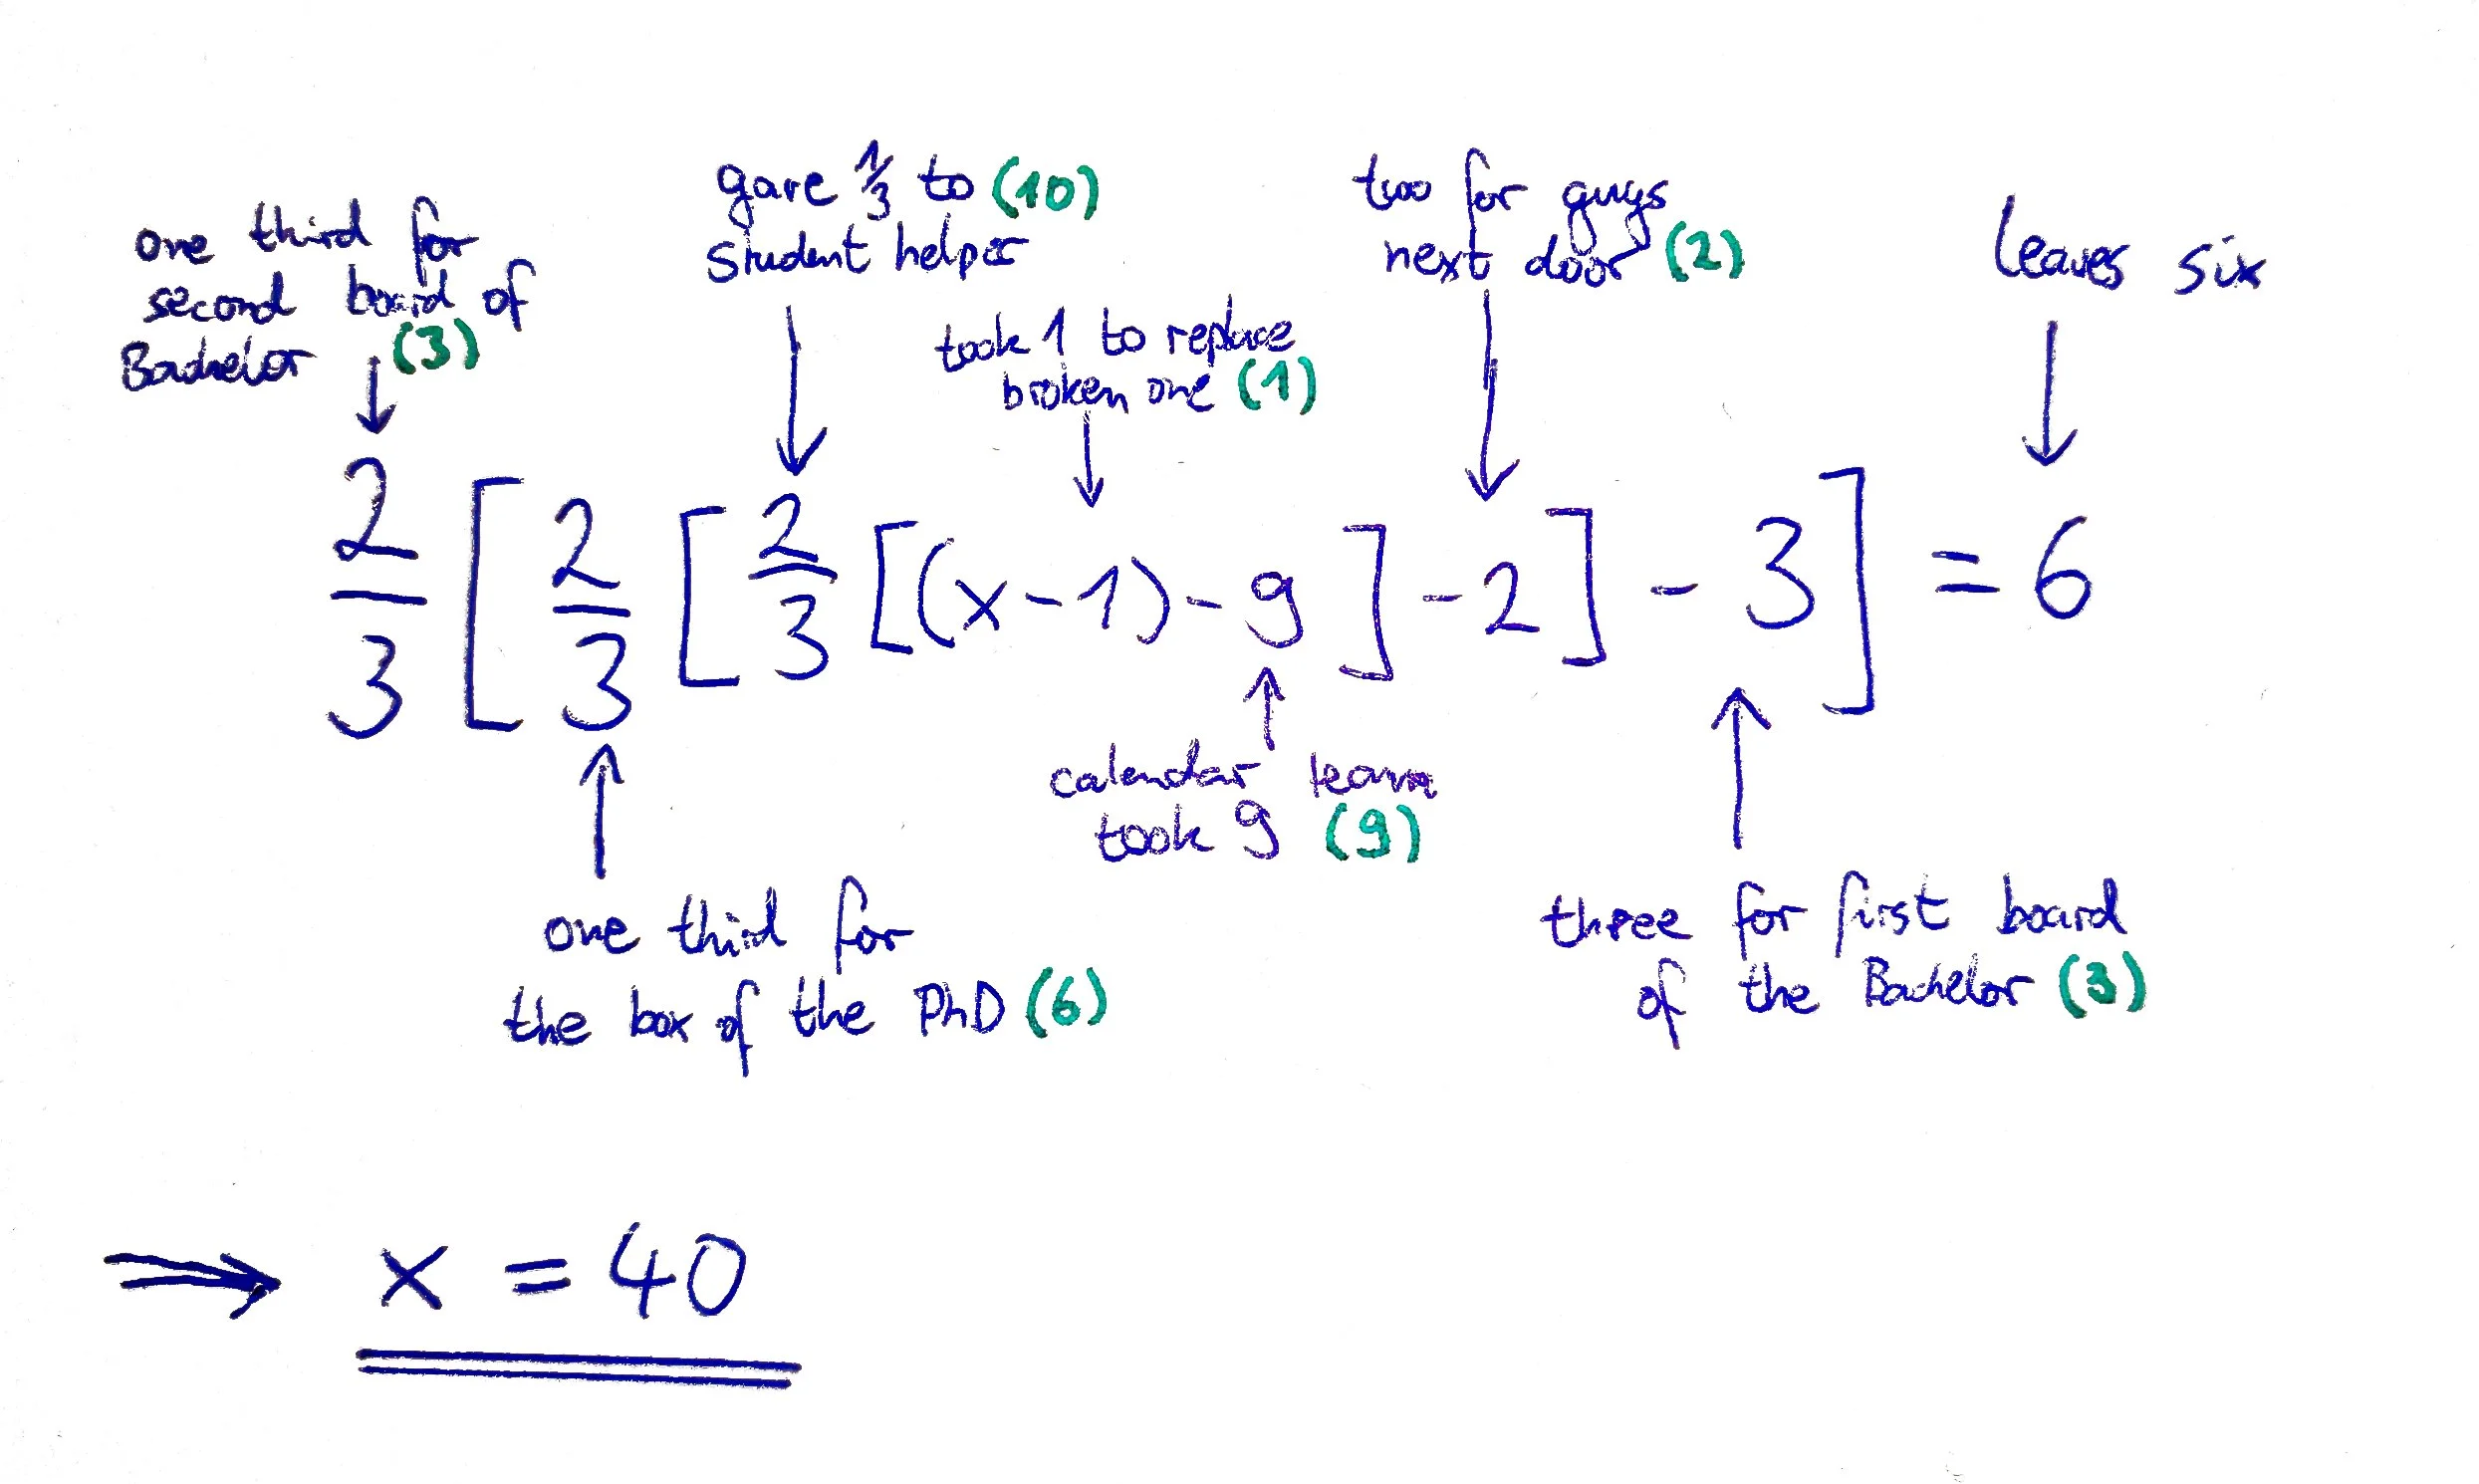 one third for
second board of
Bachelor (3)
gave 1/3 to (10)
student helper
took 1 to replace
broken one (1)
two for guys
next door (2)
leaves six
2/3 [ 2/3 [ 2/3 [(x-1)-9] -2] -3] = 6
calendar team
took 9 (9)
one third for
the box of the PhD (6)
three for first board
of the Bachelor (3)
⇒ x = 40